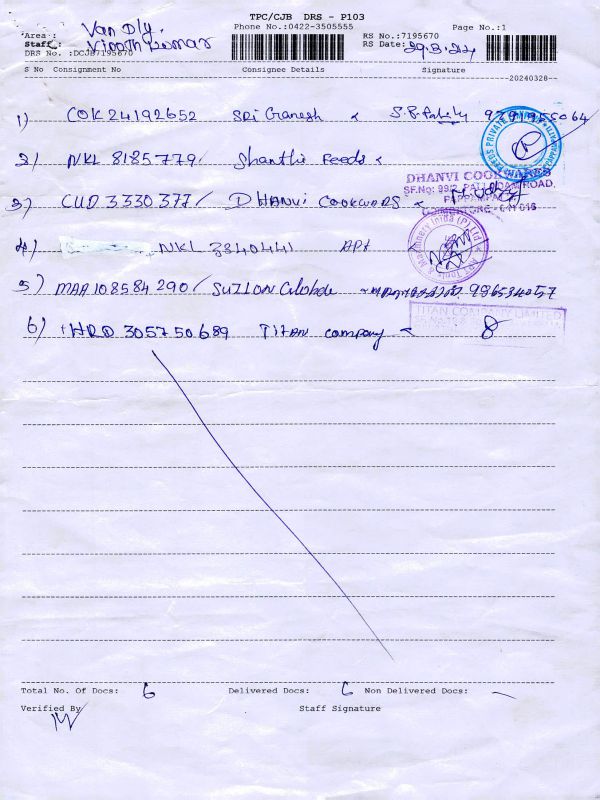 TPC/CJB DRS - P103
Area : Van Dly.
Phone No.:0422-3505555
Page No.:1
Staff : Vinoth Kumar
RS No.:7195670
RS Date: 29.3.24
DRS No. :DCJB7195670
S No Consignment No Consignee Details Signature
20240328
1) COK 24192652 Sri Ganesh
2) NKL 8185779/ Shanthi Feeds
DHANVI COOKWARES
SF.No: 99/2, PALLADAM ROAD,
PAPPAMPATTI
COIMBATORE - 641 016
3) CUD 3330377/ DHANVI COOKWARS
4) NKL 3840441
5) MAA 108584290/ SUZLON Globde
6) HRD 305750689 TITAN company
TITAN COMPANY LIMITED
Total No. Of Docs: 6 Delivered Docs: 6 Non Delivered Docs: -
Verified By Staff Signature